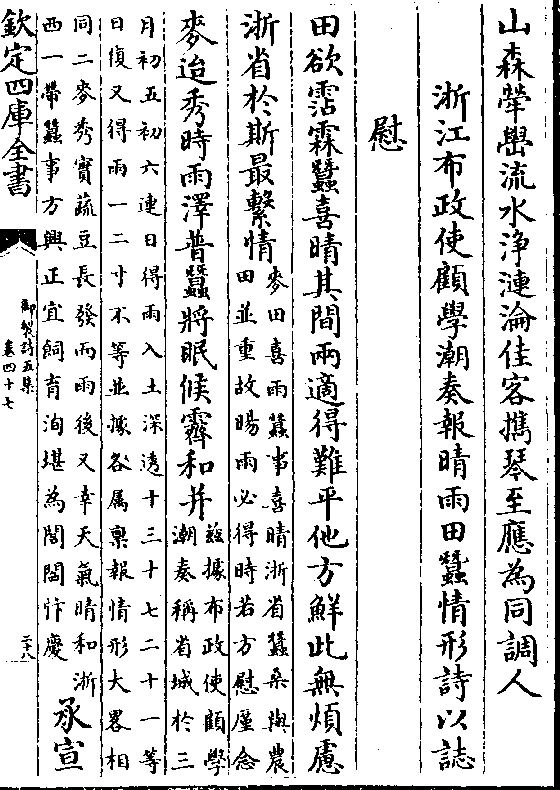 山森犖嶨流水浄漣淪佳客攜琴至應為同調人
浙江布政使顧學潮奏報晴雨田蠶情形詩以誌
慰
田欲霑霖蠶喜晴其間兩適得難平他方鮮此無煩慮
浙省於斯最繫情麥田喜雨蠶事喜晴浙省蠶桑與農
田並重故暘雨必得時若方慰廑念
麥迨秀時雨澤普蠶將眠候霽和并兹據布政使顧學
潮奏稱省城於三
月初五初六連日得雨入土深透十三十七二十一等
日復又得雨一二寸不等並據各属稟報情形大畧相
同二麥秀實蔬豆長發而雨後又幸天氣晴和浙
西一帶蠶事方興正宜飼育洵堪為閭閻忭慶
承宣
欽定四庫全書
御製詩五集
卷四十七
二十八